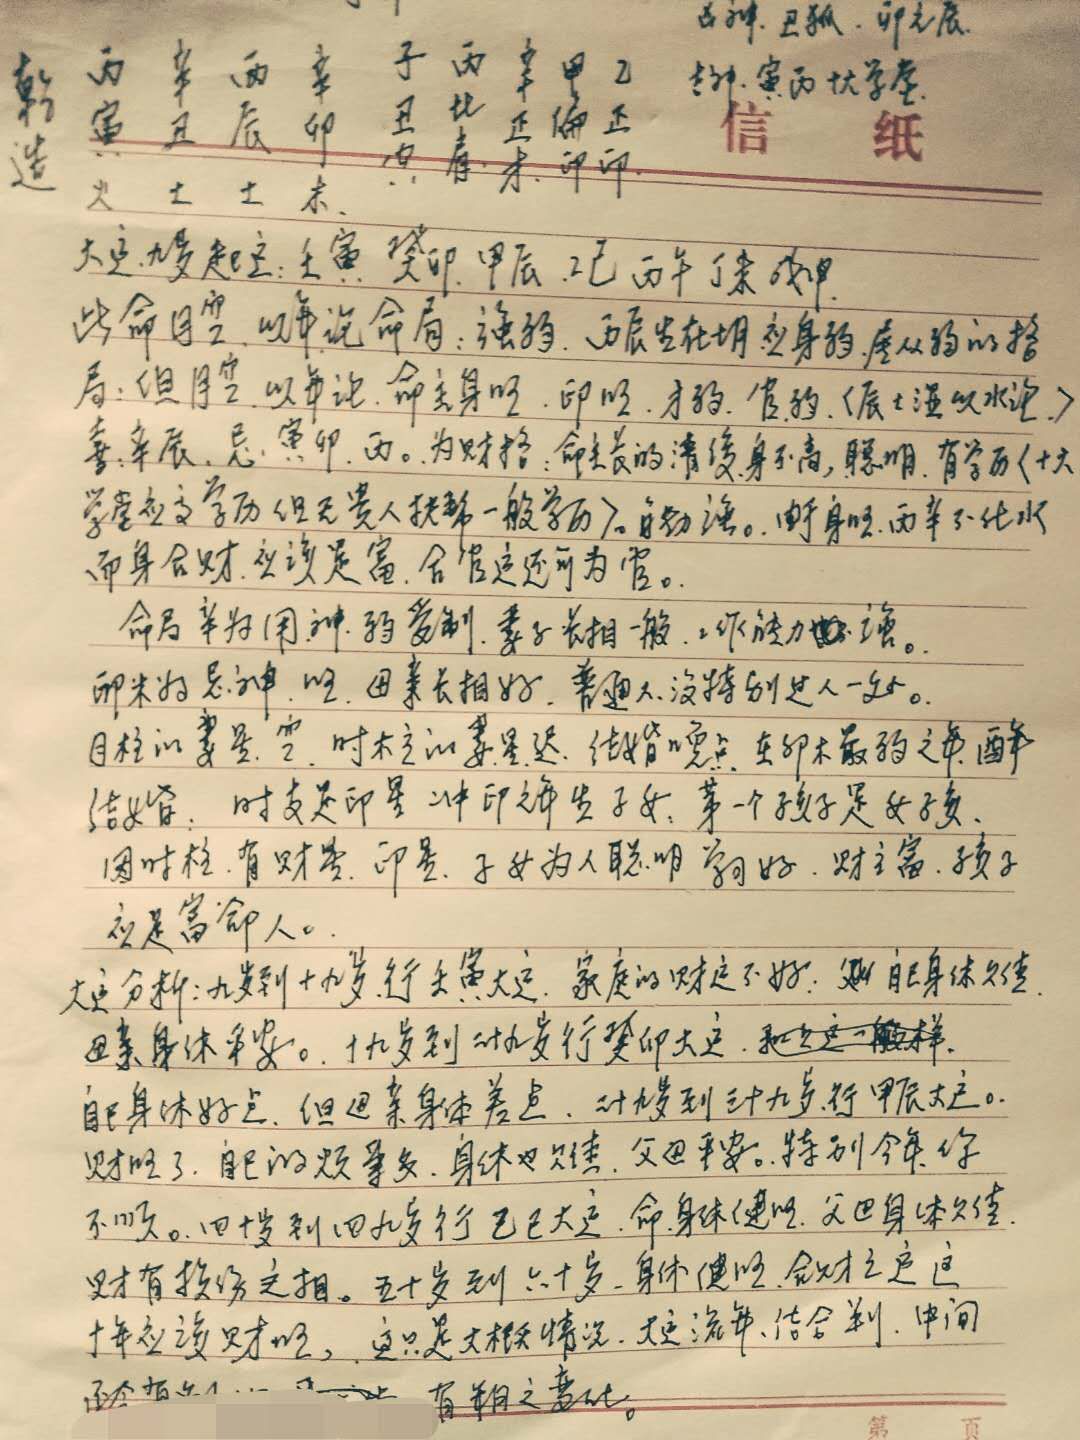 吉神.寅丙十大学堂.
信 纸
乾造
丙 辛 丙 辛 子 丙 辛 甲 乙
寅 丑 辰 卯 丑 比 正 偏 正
火 土 土 木. 空 肩. 才. 印 印.
大运.九岁起运:壬寅.癸卯.甲辰.乙巳 丙午 丁未 戊申.
此命日空.以年论命局:强弱.丙辰生在丑月.应身弱.是从弱的格
局:但日空.以年论.命主身旺.印旺.才弱.官弱.〈辰土湿以水论.〉
喜:辛辰.忌:寅卯.丙。为财格:命主长的清俊.身不高,聪明.有学历〈十大
学堂应高学历但无贵人扶帮一般学历〉。自劲强。.由于身旺.丙辛不化水
而身合财.应该是富.合官运还可为官。
命局辛为用神.弱受制.妻子长相一般.工作能力强。
卯木为忌神.旺.母亲长相好.普通人.没特别过人之处。
日柱的妻星.空.时木主的妻星迟.结婚晚点.在卯木最弱之年.酉年
结婚:时支是印星.冲印之年生子女.第一个孩子是女孩.
因时柱.有财星.印星.子女为人聪明.学习好.财主富.孩子
应是富命人。
大运分析:九岁到十九岁.行壬寅大运.家庭的财运不好.自己身体欠佳.
母亲身体平安。十九岁到廿九岁行癸卯大运.
自己身体好点.但母亲身体差点.廿九岁到三十九岁.行甲辰大运。
财旺了.自己的烦事多.身体也欠佳.父母平安。特别今年.你
不顺。四十岁到四九岁行乙巳大运.命.身体健旺.父母身体欠佳.
财有损伤之相。五十岁到六十岁.身体健旺.合财之运这
十年应该财旺,这只是大概情况.大运流年.结合判.中间
还会有 有半月之变化。
第 页